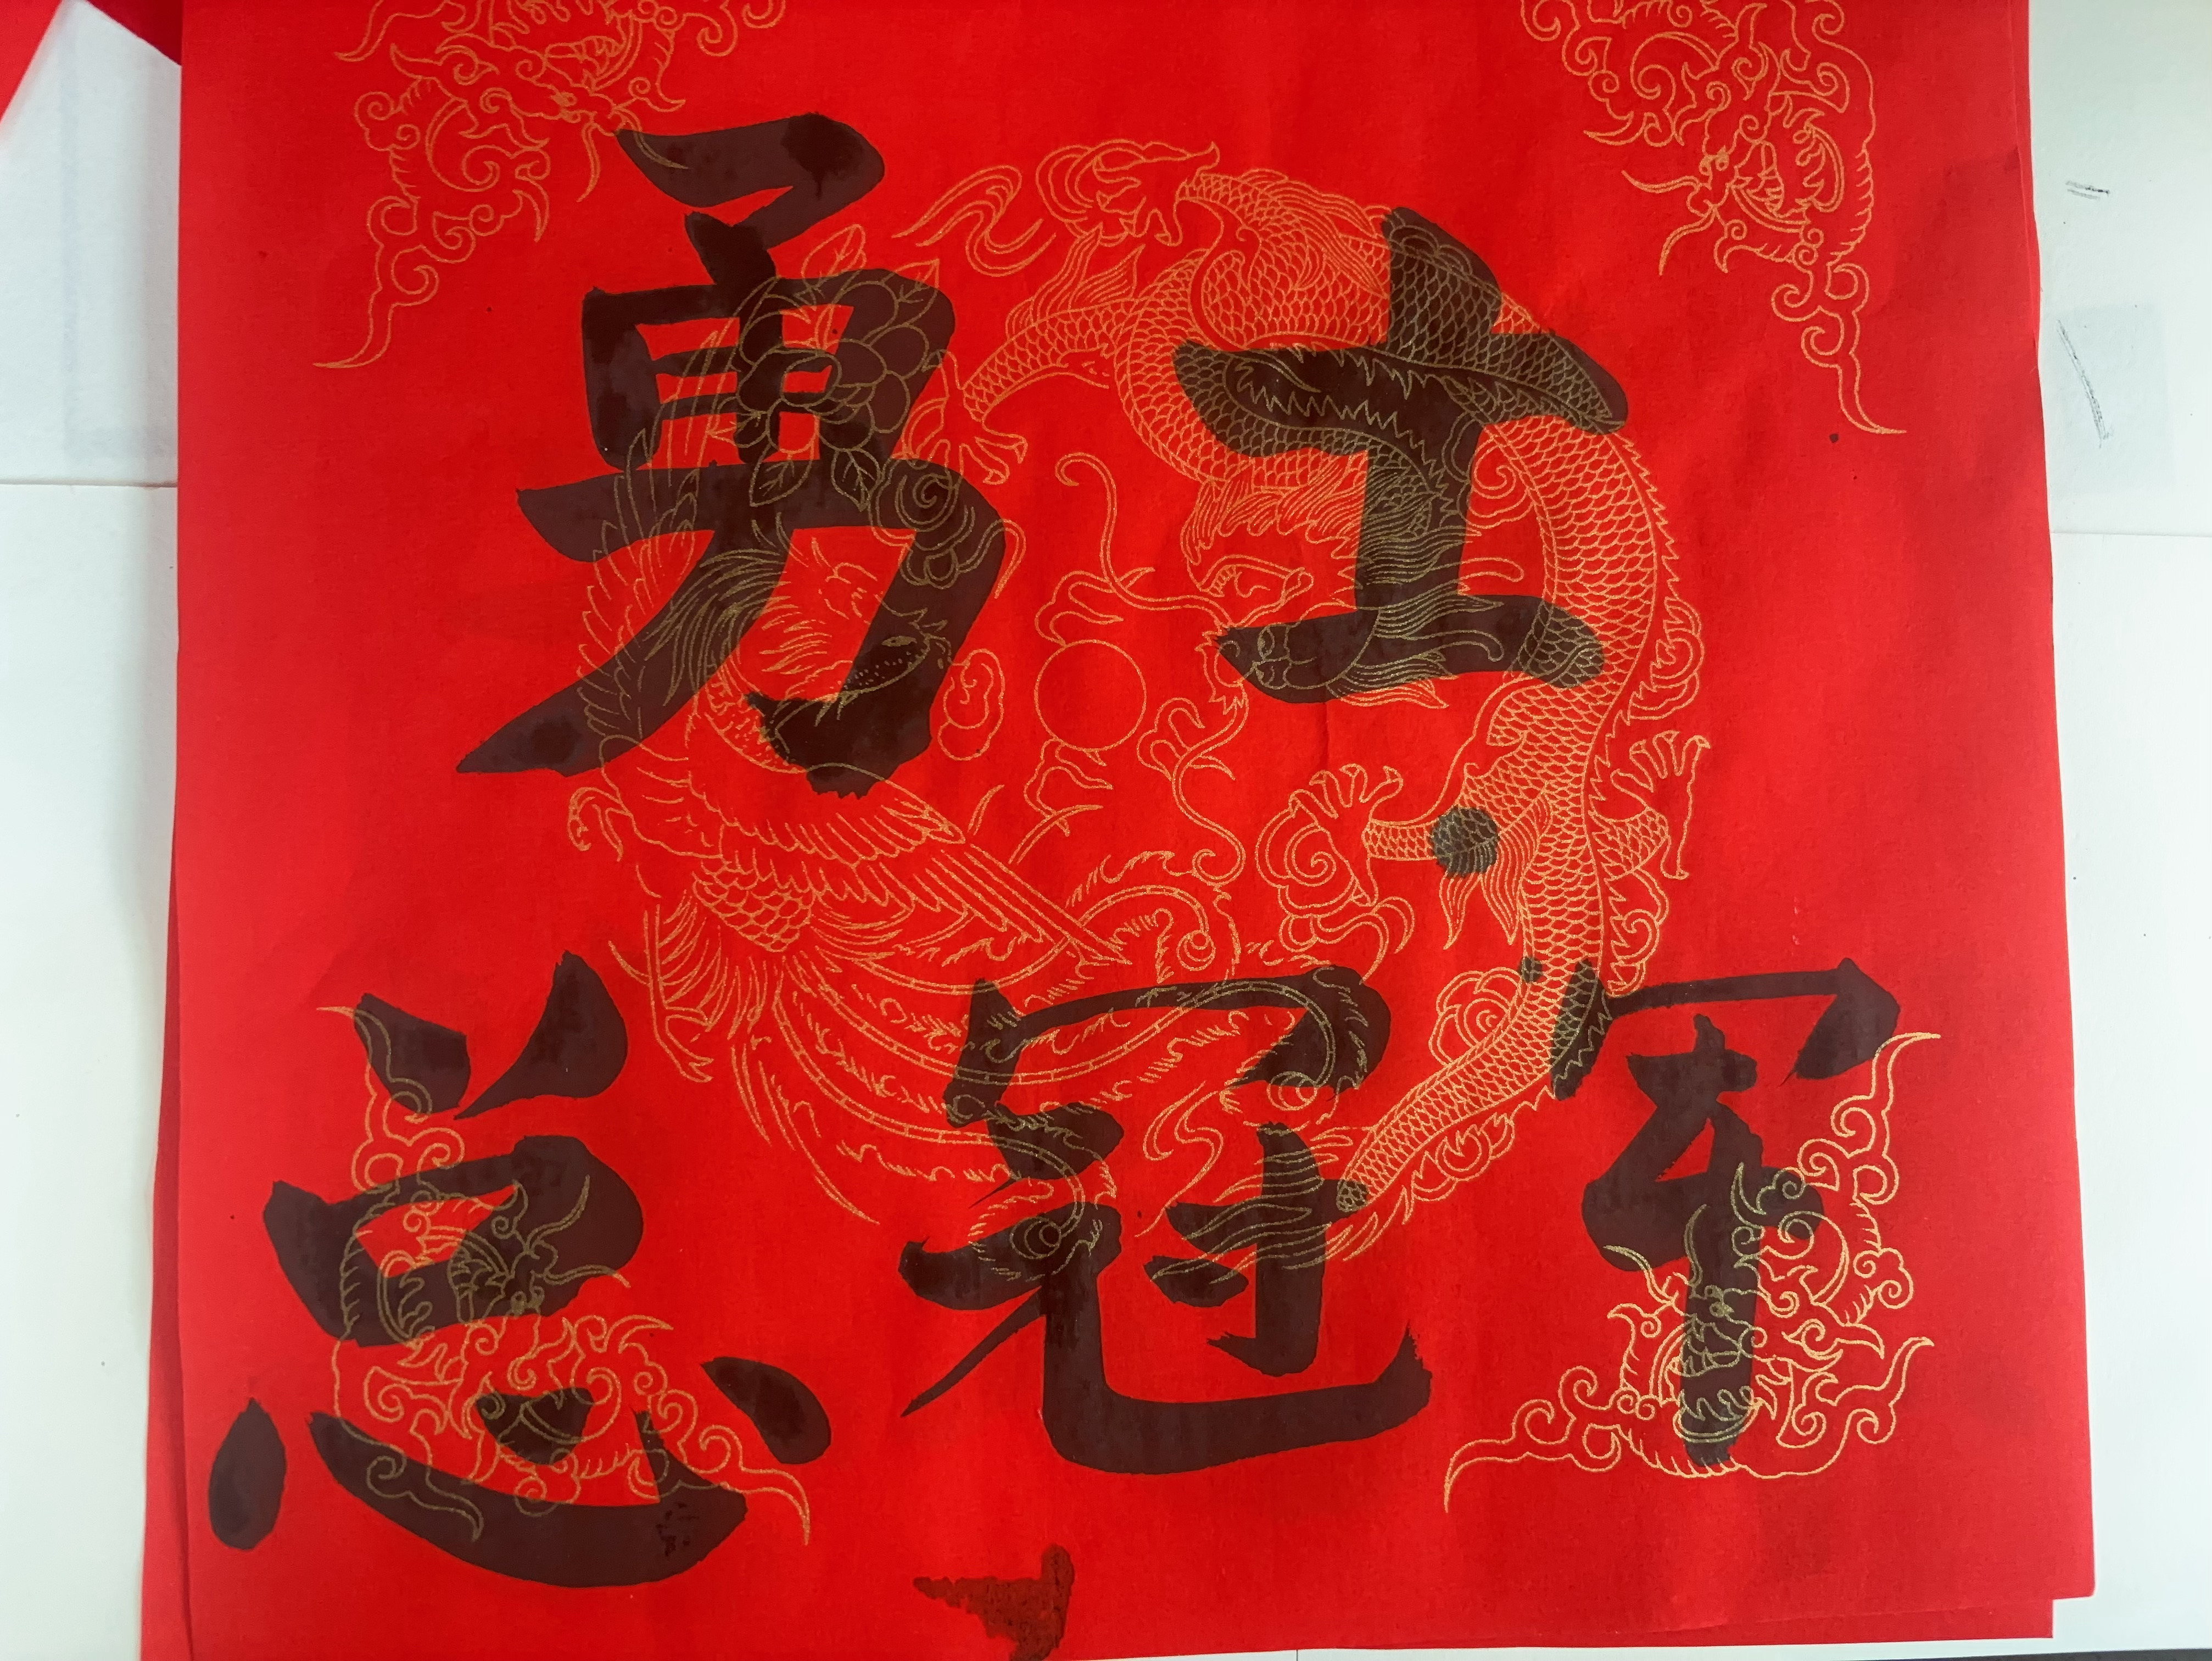 勇士
总冠军